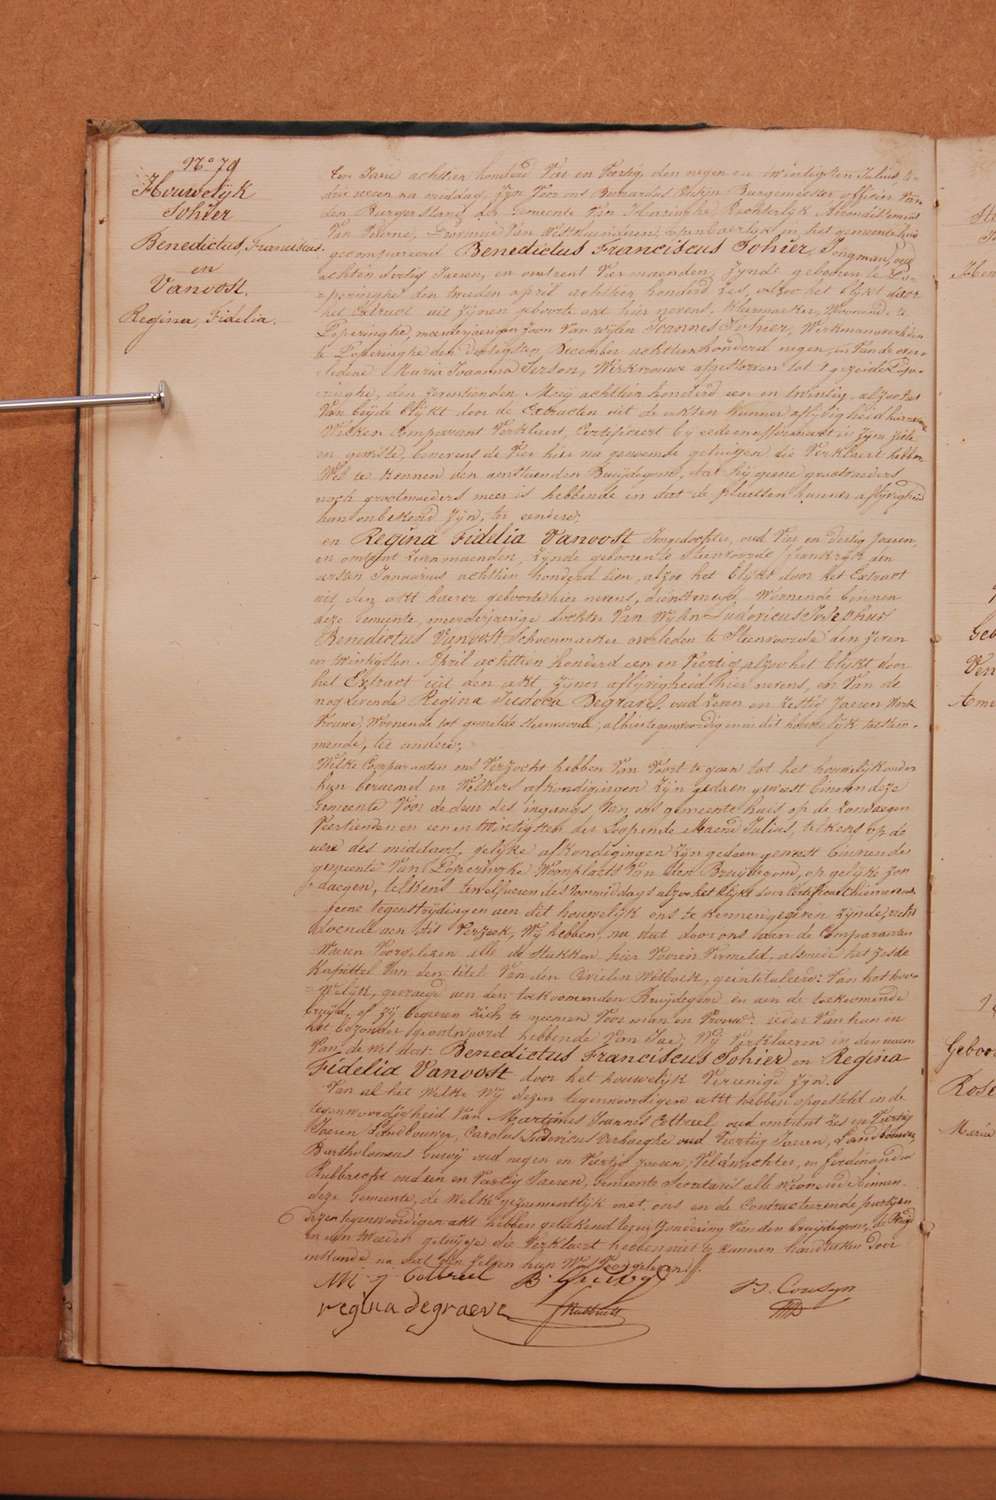 N° 79
Houwelijk
Sohier
Benedictus, Franciscus.
en
Vanoost.
Regina, Fidelia.
Ten Jaere achttien honderd Vier en Veertig, den negen en twintigsten Julius te
drie uren na middag, Zyn Voor ons Burgemeester, officier Van
den Burgerstand der Gemeente Van Arrondissement
Van Veurne, Provincie Van Westvlaenderen, openbaerlyk in het gemeentehuis
gecompareerd Benedictus Franciscus Sohier, Jongman, oud
achten dertig Jaeren, en omtrent Vier maenden, Zynde geboren te Po-
=peringhe den tweeden april achttien honderd zes, alzoo het blykt door
het Extract uit Zynen geboorte akt hier nevens, Kleermaeker, Woonende te
Poperinghe, meerderjaerigen zoon Van wylen Joannes Sohier, Werkman overleden
te Poperinghe den dertigsten December achttien honderd negen, en Van de over-
ledene Maria Joanna Werkvrouwe afgestorven tot 't gezeide Pope-
ringhe, den Zeventienden Mey achttien honderd een en twintig alzoo het
Van beyde blykt door de Extracten uit de akten Hunner aflyvigheid hiernevens
Welken Comparant Verklaert, Certificeert by eede en affirmeert in Zyne ziele
en gewisse, benevens de Vier hier na genoemde getuigen die Verklaert hebben
Wel te kennen den aenstaenden Bruydegom, dat hy geene grootvaeders
noch grootmoeders meer is hebbende en dat de plaetsen hunner aflyvigheid
hun onbekend Zyn, ter eendere;
en Regina Fidelia Vanoost Jongedochter, oud Vier en dertig Jaeren,
en omtrent Zeven maenden, Zynde geboren te Steenvoorde frankryk den
eersten Januarius achttien honderd tien, alzoo het blykt door het Extract
uit den akt haerer geboorte hier nevens, dienstmeid, Woonende binnen
deze Gemeente, meerderjaerige dochter Van Wylen Ludovicus Josephus
Benedictus Vanoost Schoenmaeker overleden te Steenvoorde den Zeven
en twintigsten April achttien honderd een en Veertig alzoo het blykt door
het Extract uit den akt Zyner aflyvigheid hier nevens, en Van de
nog levende Regina Degraeve, oud Zeven en Zestig Jaeren Werk-
vrouwe, Woonende tot gemelde Steenvoorde, alhier tegenwoordig en in dit houwelyk toestem-
mende, ter andere;
Welke Comparanten ons Verzocht hebben Van Voort te gaen tot het houwelyk onder
hun beraemd en Welkers afkondigingen Zyn gedaen geweest binnen deze
Gemeente Voor de deur des ingangs Van ons gemeente huis op de Zondaegen
Veertienden en een en twintigsten der loopende Maend Julius, telkens op de
uere des middags, gelyke afkondigingen Zyn gedaen geweest binnen de
gemeente Van Poperinghe Woonplaets Van den Bruydegom, op gelyke zon-
daegen, telkens ten elf ueren des Voormiddags alzoo het blykt door Certificaet hier nevens
geene tegenstrydingen aen dit houwelyk ons te kennen gegeven Zynde, recht
doende aen dit Verzoek, Wy hebben na dat door ons aen de Comparanten
Waeren Voorgelezen alle de stukken hier Voren Vermeld, alsmede het zesde
Kapittel Van den titel Van den Civielen Wetboek, geintituleerd: Van het hou-
=welyk, gevraegd aen den toekomenden Bruydegom en aen de toekomende
bruyd, of Zy begeeren Zich te neemen Voor man en Vrouw: ieder Van hun en
het bezonder geantwoord hebbende Van Jae; Wy Verklaeren in den naem
Van de Wet dat: Benedictus Franciscus Sohier en Regina
Fidelia Vanoost door het houwelyk Vereenigd Zyn.
Van al het Welke Wy dezen tegenwoordigen akt hebben opgesteld in de
tegenwoordigheid Van Martinus Joannes Cottreel, oud omtrent zes en Veertig
Jaeren Landbouwer, Carolus Ludovicus Verhaeghe oud Veertig Jaeren, Landbouwer,
Bartholomeus oud negen en Veertig Jaeren, Veldwachter, en ferdinandus
Rubbrecht oud een en Veertig Jaeren, Gemeente Secretaris alle Woonende binnen
deze Gemeente, de Welke gezamentlyk met ons en de Contracteerende partyen
dezen tegenwoordigen akt hebben geteekend Van den bruydegom, de bruyd
en den tweeden getuyge die Verklaert hebben niet te kunnen handteeken door
onkunde na dat Zelven hun Was Voorgelezen.
M. j Cottreel
regina degraeve